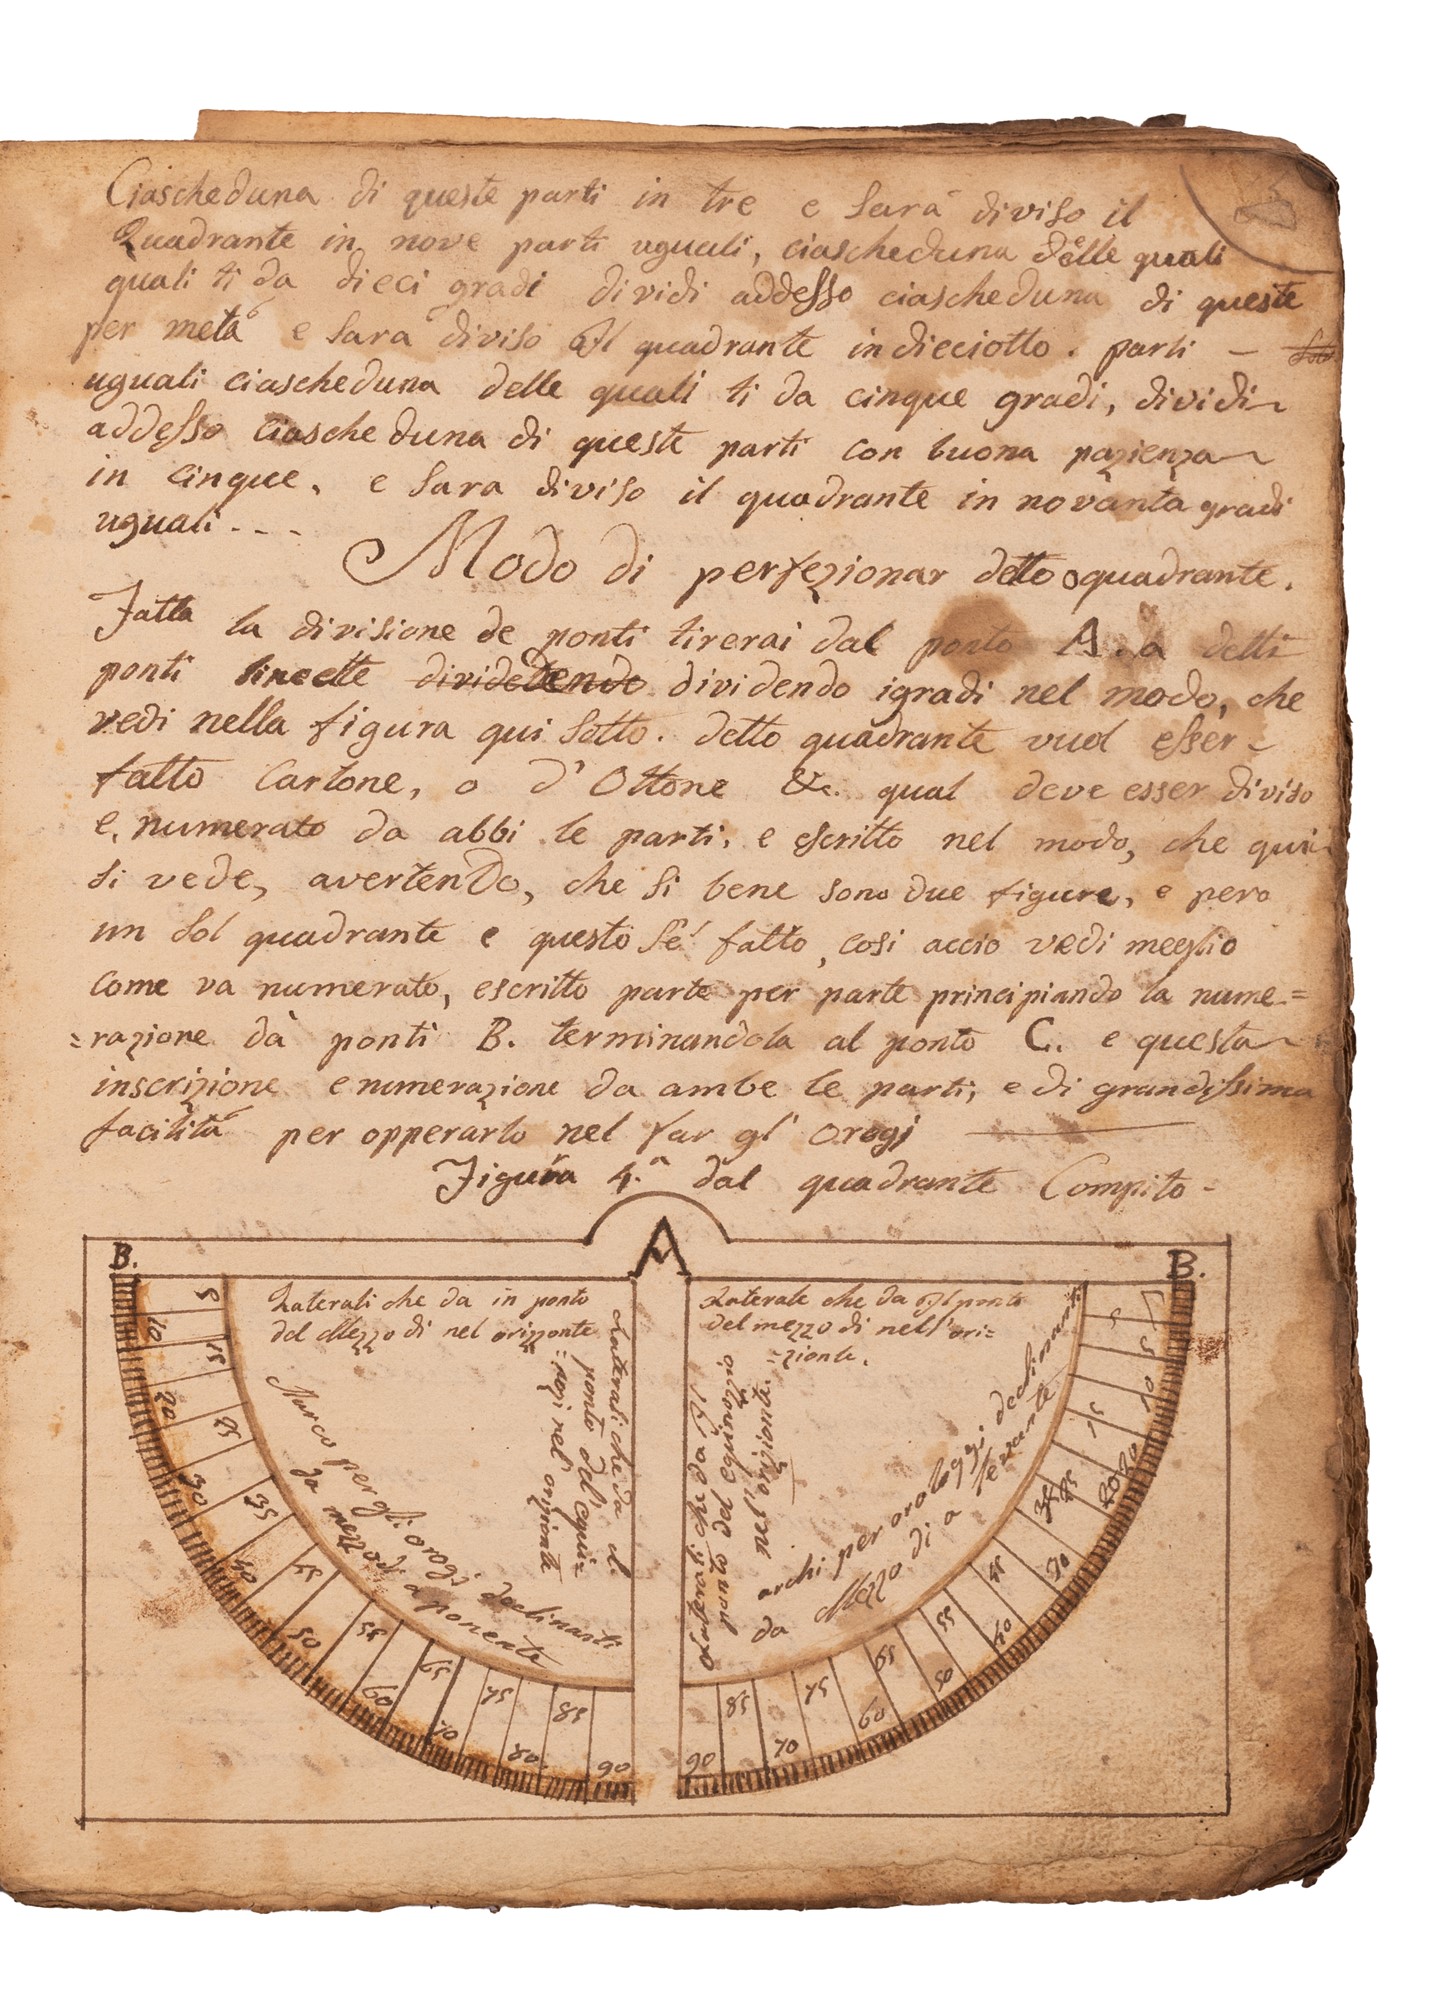 Ciascheduna di queste parti in tre e sarà diviso il
Quadrante in nove parti uguali, ciascheduna delle quali
quali ti da dieci gradi dividi addesso ciascheduna di queste
per metà e sarà diviso il quadrante in dieciotto. parti –
uguali ciascheduna delle quali ti da cinque gradi, dividi
addesso ciascheduna di queste parti con buona pazienza
in cinque, e sara diviso il quadrante in novanta gradi
uguali - - -
Modo di perfezionar detto quadrante.
Fatta la divisione de ponti tirerai dal ponto A. a detti
ponti lineette dividetendo dividendo igradi nel modo, che
vedi nella figura qui sotto. detto quadrante vuol esser
fatto Cartone, o d'Ottone &c. qual deve esser diviso
e, numerato da abbi le parti, e escritto nel modo, che qui
si vede, avertendo, che si bene sono due figure, e pero
un sol quadrante e questo sé fatto, cosi accio vedi meglio
come va numerato, escritto parte per parte principiando la nume=
=razione dà ponti B. terminandola al ponto C. e questa
inscrizione enumerazione da ambe le parti, e di grandissima
facilità per opperarlo nel far gl' orogj
Figura 4.a dal quadrante Compito -
A
B.
B.
Laterali che da in ponto
del Mezzo di nel orizzonte
Laterali che da il
ponto del' equi=
=nozi nel' orizonte
Marco per gli orogj declinanti
da mezzodi a ponente
5
10
15
20
25
30
35
40
45
50
55
60
65
70
75
80
85
90
Laterale che da il ponto
del mezzo di nell'ori=
=zionte.
Laterali che da il
ponto del equinozzio
nel' orizionte.
archi per orologgi declinanti
da Mezzo di a levante
5
5
10
15
20
20
25
35
30
45
40
55
50
65
60
75
70
85
90